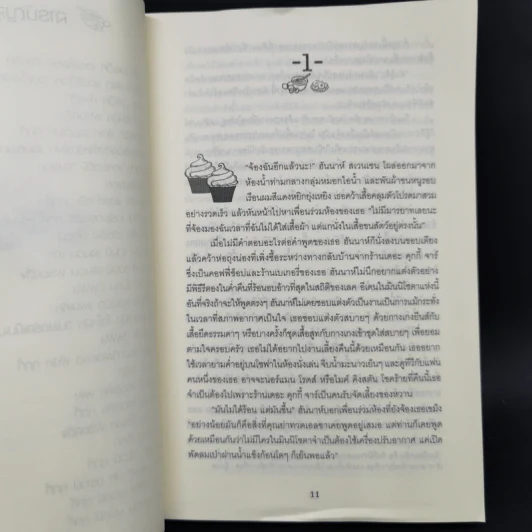 สารบัญ
-1-
"จ้องฉันอีกแล้วนะ!" ฮันนาห์ สเวนเซน โผล่ออกมาจาก
ห้องน้ำท่ามกลางกลุ่มหมอกไอน้ำ และพันผ้าขนหนูรอบ
เรือนผมสีแดงหยิกยุ่งเหยิง เธอคว้าเสื้อคลุมตัวโปรดมาสวม
อย่างรวดเร็ว แล้วหันหน้าไปหาเพื่อนร่วมห้องของเธอ "ไม่มีมารยาทเลยนะ
ที่จ้องมองฉันเวลาที่ฉันไม่ได้ใส่เสื้อผ้า แถมนั่งในเสื้อขนสัตว์อยู่ตรงนั้น"
เมื่อไม่มีคำตอบอะไรต่อคำพูดของเธอ ฮันนาห์ก็นั่งลงบนขอบเตียง
แล้วคว้าห่อถุงน่องที่เพิ่งซื้อระหว่างทางกลับบ้านจากร้านเดอะ คุกกี้ จาร์
ซึ่งเป็นคอฟฟี่ช็อปและร้านเบเกอรี่ของเธอ ฮันนาห์ไม่นึกอยากแต่งตัวอย่าง
มีพิธีรีตองในค่ำคืนที่ร้อนอบอ้าวที่สุดในสถิติของเลค อีเดนในมินนิโซตาแห่งนี้
อันที่จริงถ้าจะให้พูดตรงๆ ฮันนาห์ไม่เคยชอบแต่งตัวเป็นงานเป็นการแม้กระทั่ง
ในเวลาที่สภาพอากาศเป็นใจ เธอชอบแต่งตัวสบายๆ ด้วยกางเกงยีนส์กับ
เสื้อยืดธรรมดาๆ หรือบางครั้งก็ชุดเสื้อสูทกับกางเกงเข้าชุดใส่สบายๆ เพื่อยอม
ตามใจครอบครัว เธอไม่ได้อยากไปงานเลี้ยงคืนนี้ด้วยเหมือนกัน เธออยาก
ใช้เวลายามค่ำอยู่บนโซฟาในห้องนั่งเล่น จิบน้ำมะนาวเย็นๆ และดูทีวีกับแฟน
คนหนึ่งของเธอ อาจจะนอร์แมน โรดส์ หรือไมค์ คิงสตัน โชคร้ายที่คืนนี้เธอ
จำเป็นต้องไปเพราะร้านเดอะ คุกกี้ จาร์เป็นคนรับจัดเลี้ยงของหวาน
"มันไม่ได้ร้อน แต่มันชื้น" ฮันนาห์บอกเพื่อนร่วมห้องที่ยังจ้องเธอเขม็ง
"อย่างน้อยมันก็คือสิ่งที่คุณย่าทวดเอลซาเคยพูดอยู่เสมอ แต่ท่านก็เคยพูด
ด้วยเหมือนกันว่าไม่มีใครในมินนิโซตาจำเป็นต้องใช้เครื่องปรับอากาศ แค่เปิด
พัดลมเป่าผ่านน้ำแข็งก้อนโตๆ ก็เย็นพอแล้ว"
11